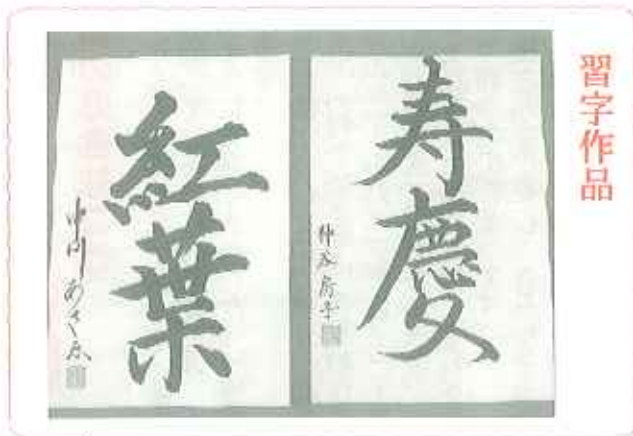 習字作品
寿慶
紅葉